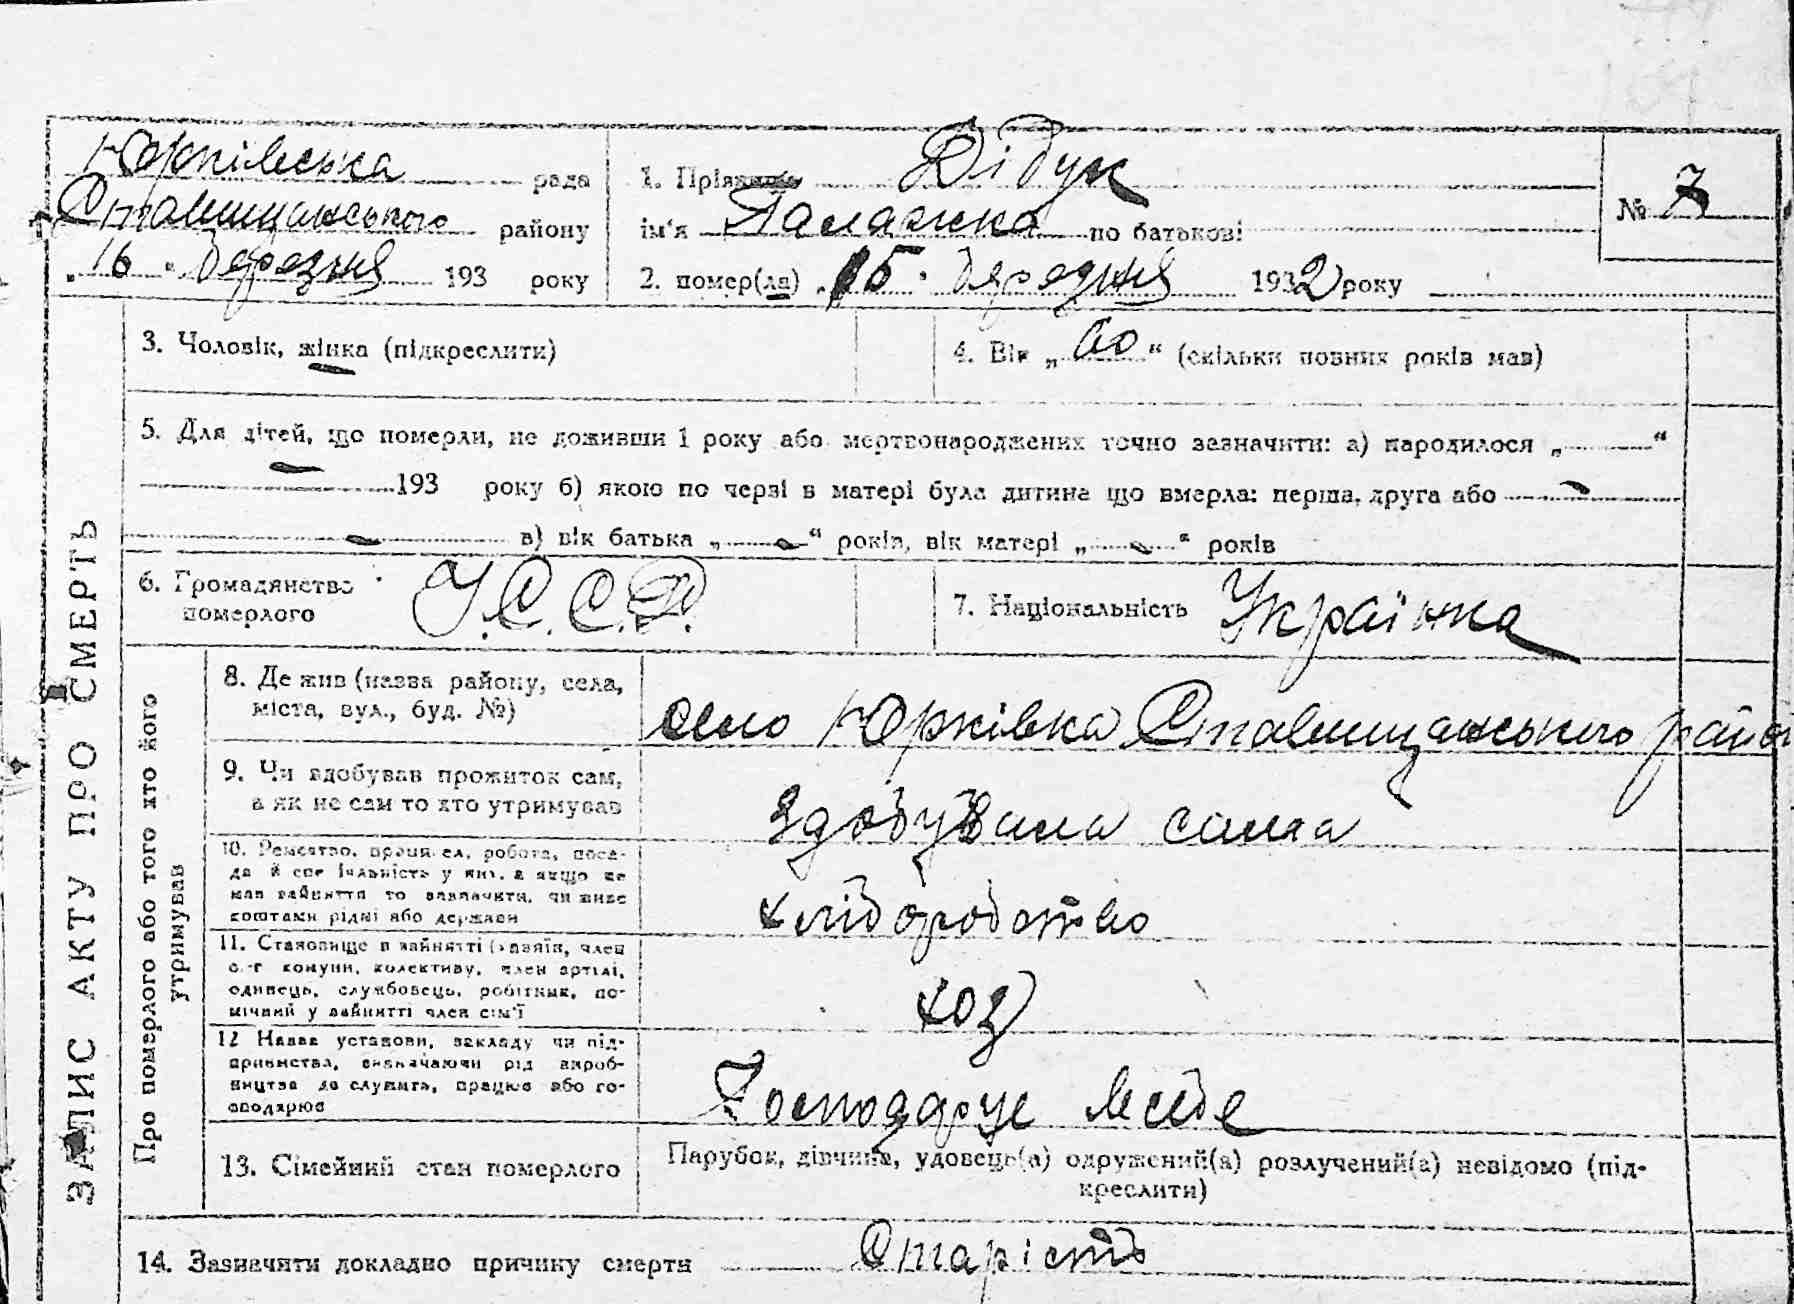 Юрківська рада
Ставищанського району
„16“ березня 193 року
1. Прізвище Дідук
ім'я Палажка по батькові
2. помер(ла) „15“ березня 1932 року
№ 7
3. Чоловік, жінка (підкреслити)
4. Вік „60“ (скільки повних років мав)
5. Для дітей, що померли, не доживши 1 року або мертвонароджених точно зазначити: а) народилося „ “
193 року б) якою по черзі в матері була дитина що вмерла: перша, друга або
в) вік батька „ “ років, вік матері „ “ років
6. Громадянство
померлого
У.С.С.Р.
7. Національність Українка
ЗАПИС АКТУ ПРО СМЕРТЬ
Про померлого або того хто його
утримував
8. Де жив (назва району, села,
міста, вул., буд. №)
село Юрківка Ставищанського
9. Чи здобував прожиток сам,
а як не сам то хто утримував
Здобувала сама
10. Ремество, робота, поса-
да й спеціяльність у них, а якщо не
мав зайняття то зазначити, чи живе
коштами рідні або держави
хліборобство
11. Становище в зайнятті (хазяїн, член
комуни, колективу, член артілі,
одинець, службовець, робітник, по-
мічний у зайнятті член сім'ї
хоз
12 Назва установи, закладу чи під-
приємства, визначаючи рід вироб-
ництва де служить, працює або го-
сподарює
Господарує в себе
13. Сімейний стан померлого
Парубок, дівчина, удовець(а) одружений(а) розлучений(а) невідомо (під-
креслити)
14. Зазначити докладно причину смерти Старість